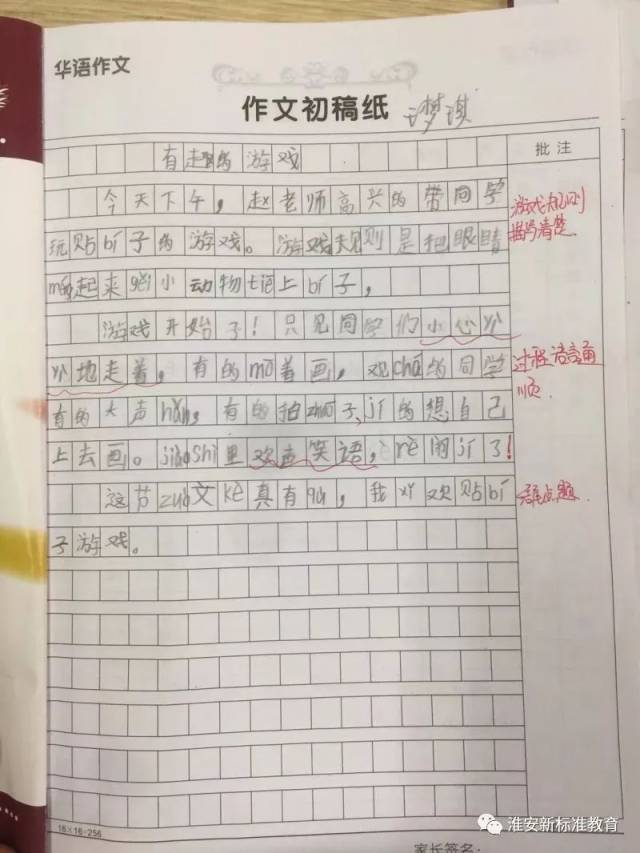 华语作文
作文初稿纸
梦琪
批注
有趣的游戏
今天下午，赵老师高兴的带同学
玩贴bí子的游戏。游戏规则是把眼睛
起来gěi小动物tiē上bí子，
游戏开始了！只见同学们小心公
公地走着，有的mō着画，观chá的同学
有的大声hǎn，有的拍zhuō子，jí的想自己
上去画。jiàoshì里欢声笑语，rè闹jí了！
这节zuò文kè真有qù，我xǐ欢贴bí
子游戏。
游戏规则
描写清楚.
过程语言通
顺.
结尾点题.
16×16=256
家长签名：
淮安新标准教育